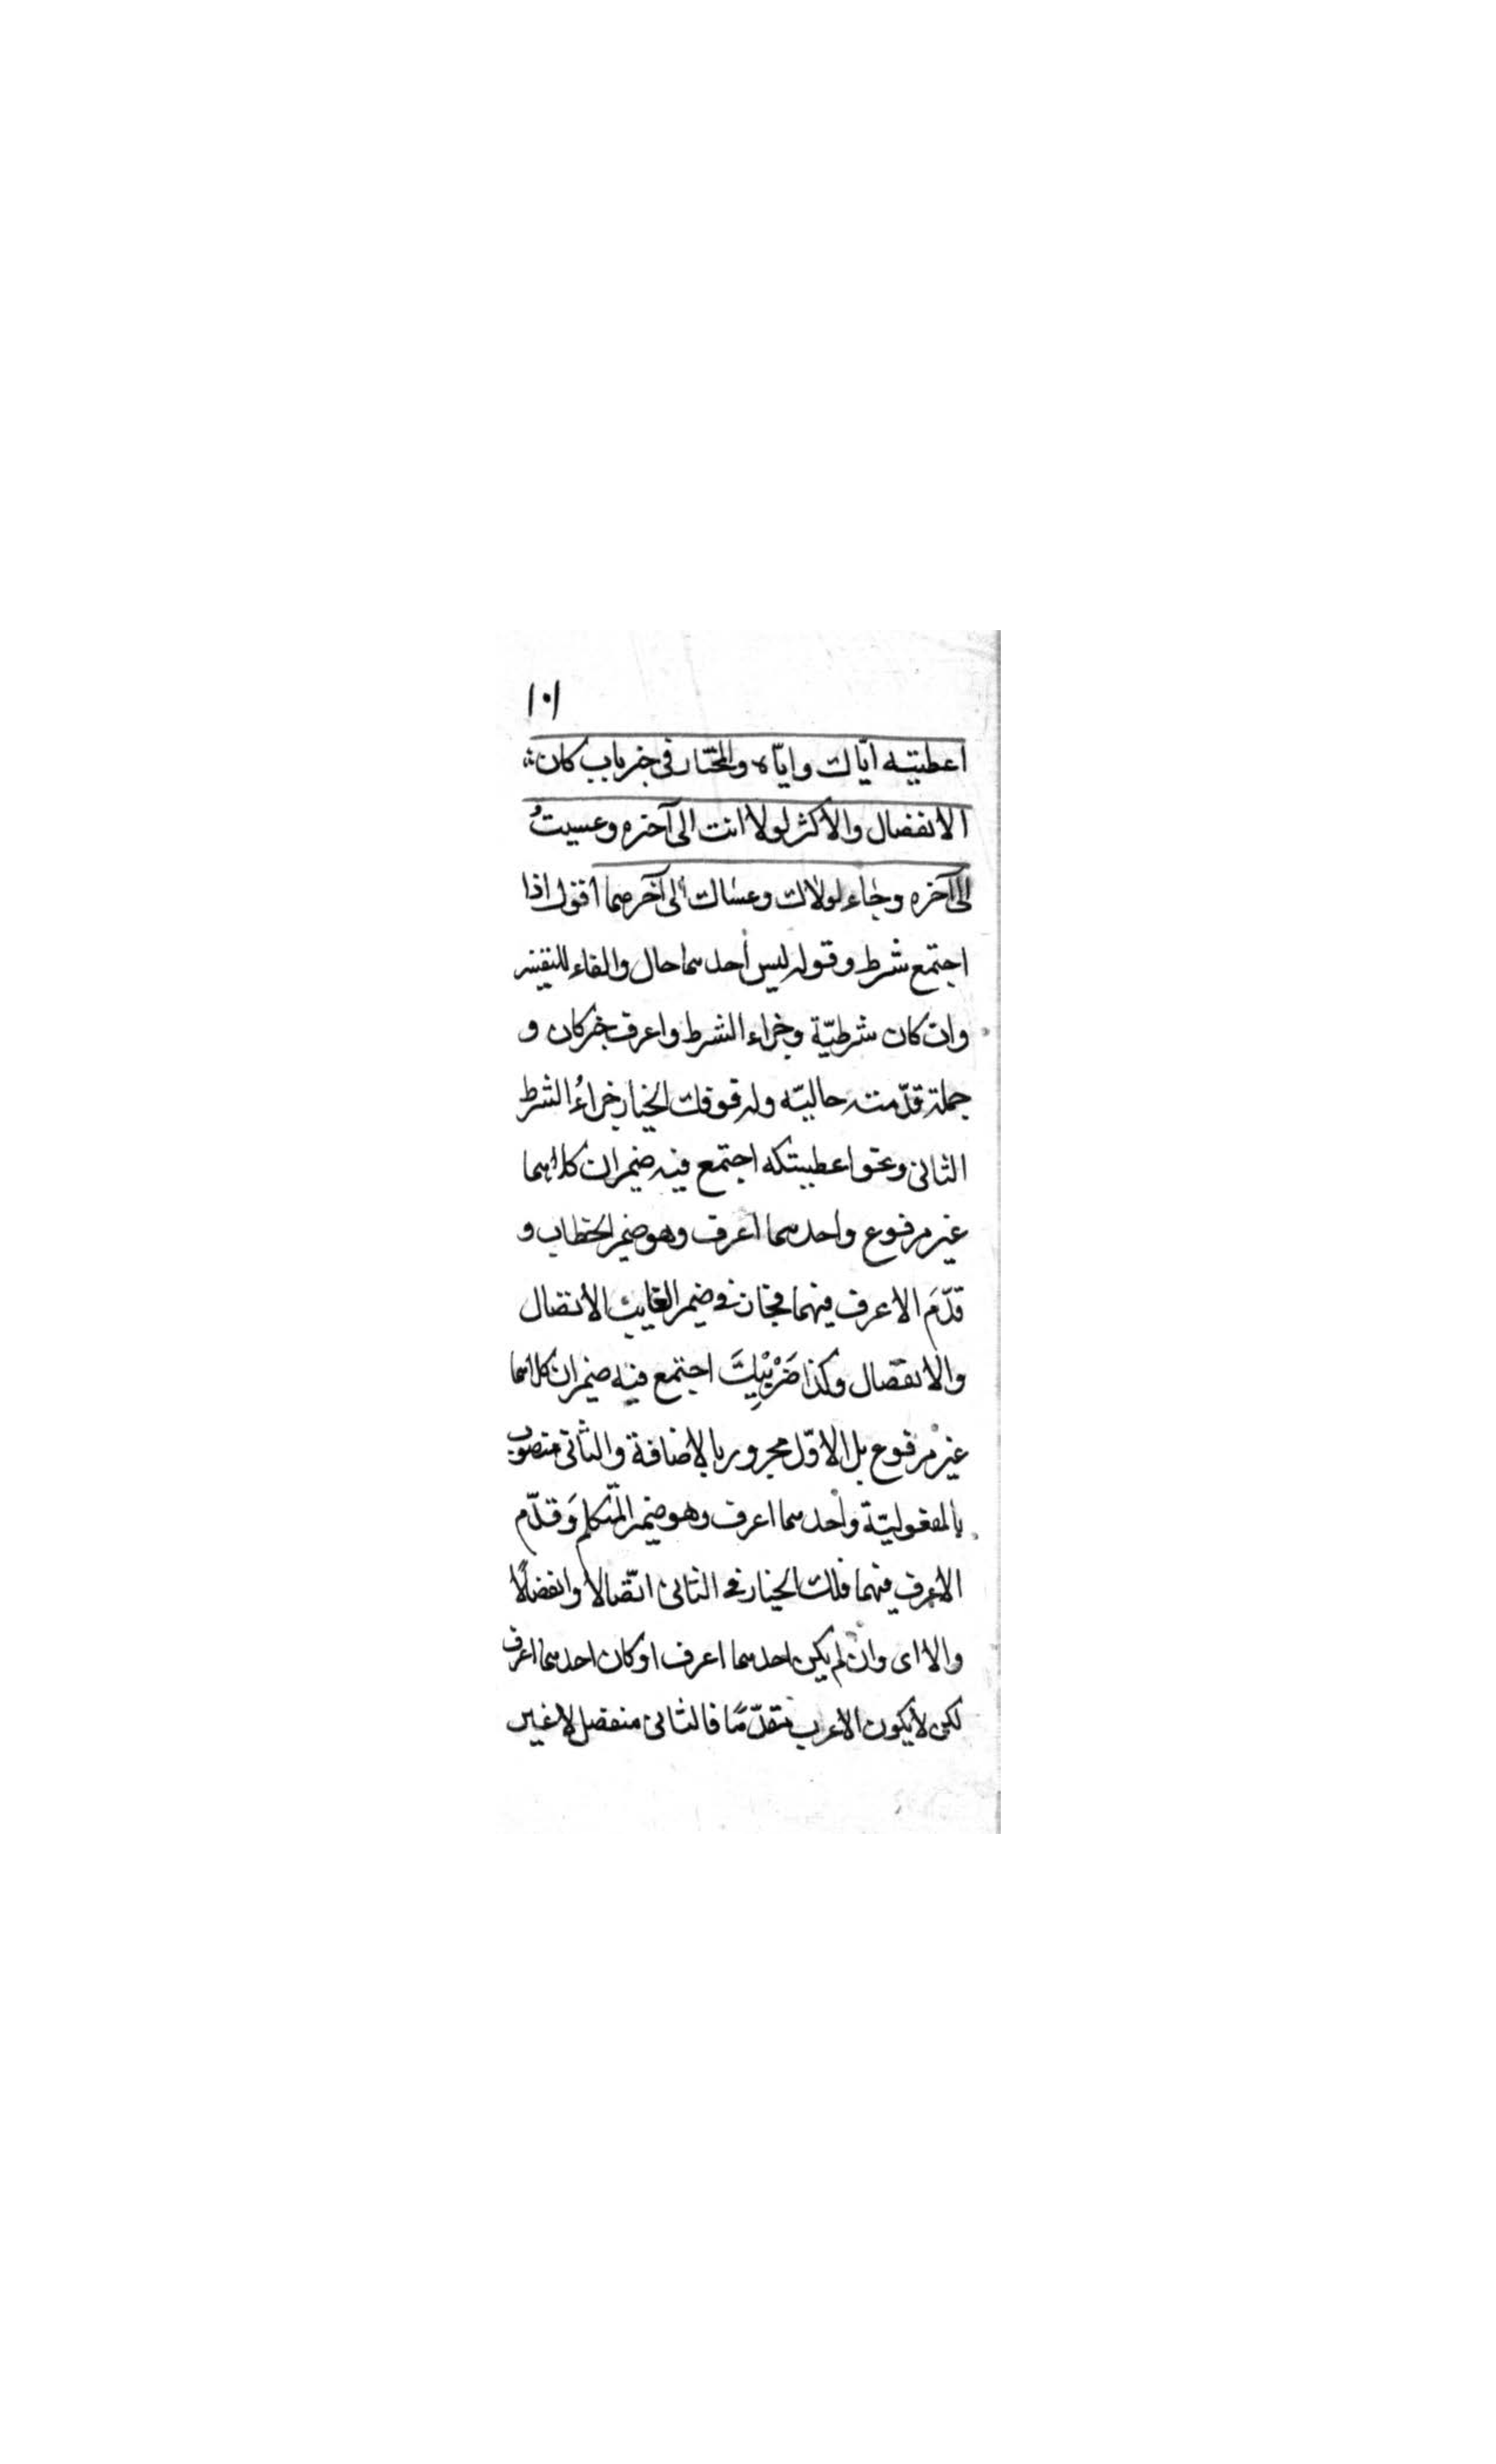 ١٠١
اعطيته ايّاك وايّاه والمختار فى خبر باب كان
الانفصال والاكثر لولا انت الى آخره وعسيتُ
الى آخره وجاء لولاك وعساك الى آخرهما اقول اذا
اجتمع شرط وقوله ليس احدهما حال والفاء للتفسير
وان كان شرطيّة وجزاء الشرط واعرف خبر كان و
جملة قدّمته حاليّه وله قوفلك الخيار جزاءُ الشرط
الثانى ونحو اعطيتكه اجتمع فيه ضميران كلاهما
غير مرفوع واحدهما اعرف وهو ضمير الخطاب و
قدّمَ الاعرف فيهما فجاز فى ضمير الغايب الاتصال
والانفصال وكذا ضَرْبِيْكَ اجتمع فيه ضميران كلاهما
غير مرفوع بل الاوّل مجرور بالاضافة والثانى منصوب
بالمفعوليّة واحدهما اعرف وهو ضمير المتكلم وَقدّم
الاعرف فيهما فلك الخيار فى الثانى اتّصالا وانفصالًا
والا اى وان لم يكن احدهما اعرف او كان احدهما اعرف
لكن لا يكون الاعرف متقدّمًا فالثانى منفصل لا غير